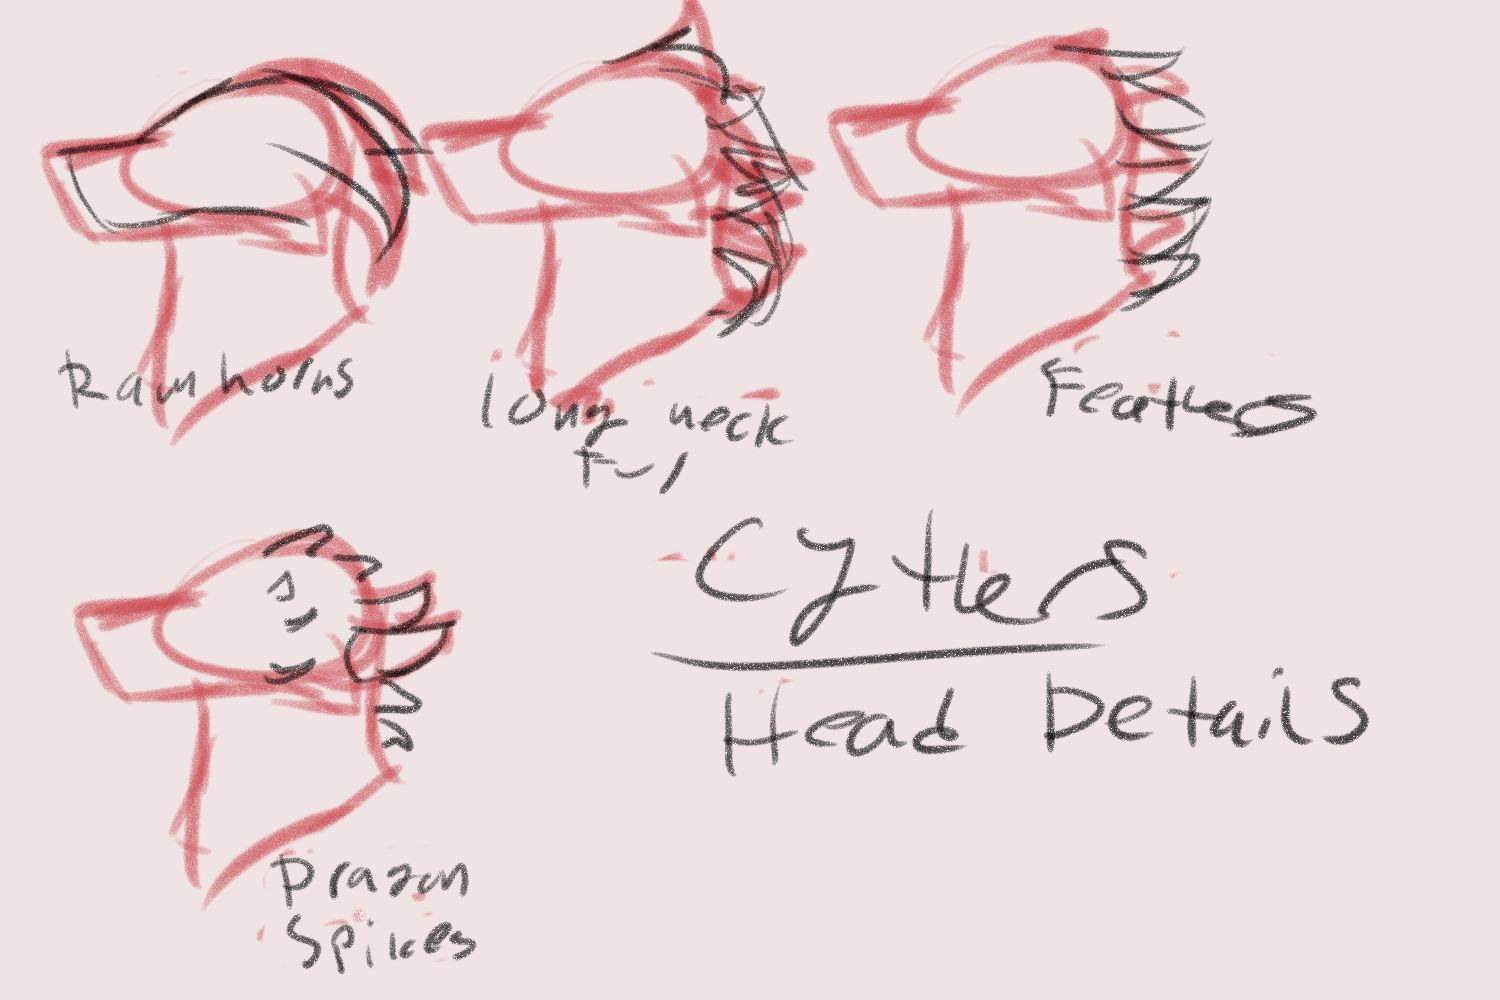 Ram horns
long neck
fur
Feathers
Cythers
Head Details
Dragon
Spikes